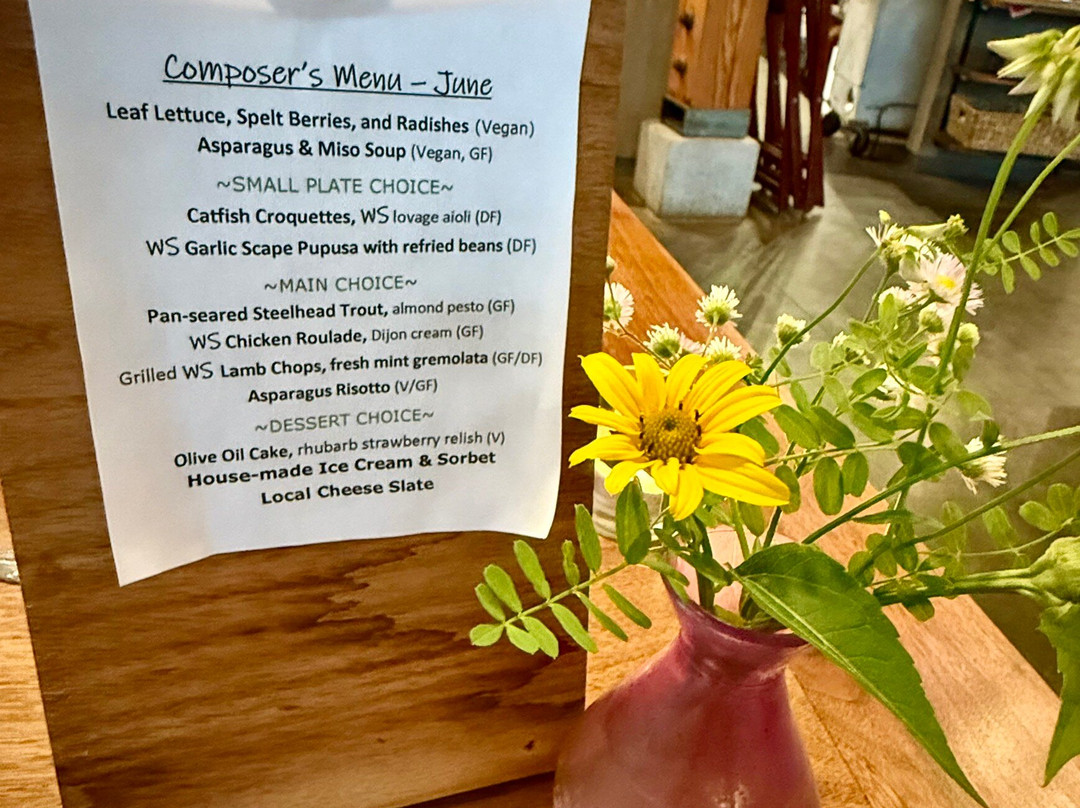 Composer's Menu – June
Leaf Lettuce, Spelt Berries, and Radishes (Vegan)
Asparagus & Miso Soup (Vegan, GF)
~SMALL PLATE CHOICE~
Catfish Croquettes, WS lovage aioli (DF)
WS Garlic Scape Pupusa with refried beans (DF)
~MAIN CHOICE~
Pan-seared Steelhead Trout, almond pesto (GF)
WS Chicken Roulade, Dijon cream (GF)
Grilled WS Lamb Chops, fresh mint gremolata (GF/DF)
Asparagus Risotto (V/GF)
~DESSERT CHOICE~
Olive Oil Cake, rhubarb strawberry relish (V)
House-made Ice Cream & Sorbet
Local Cheese Slate